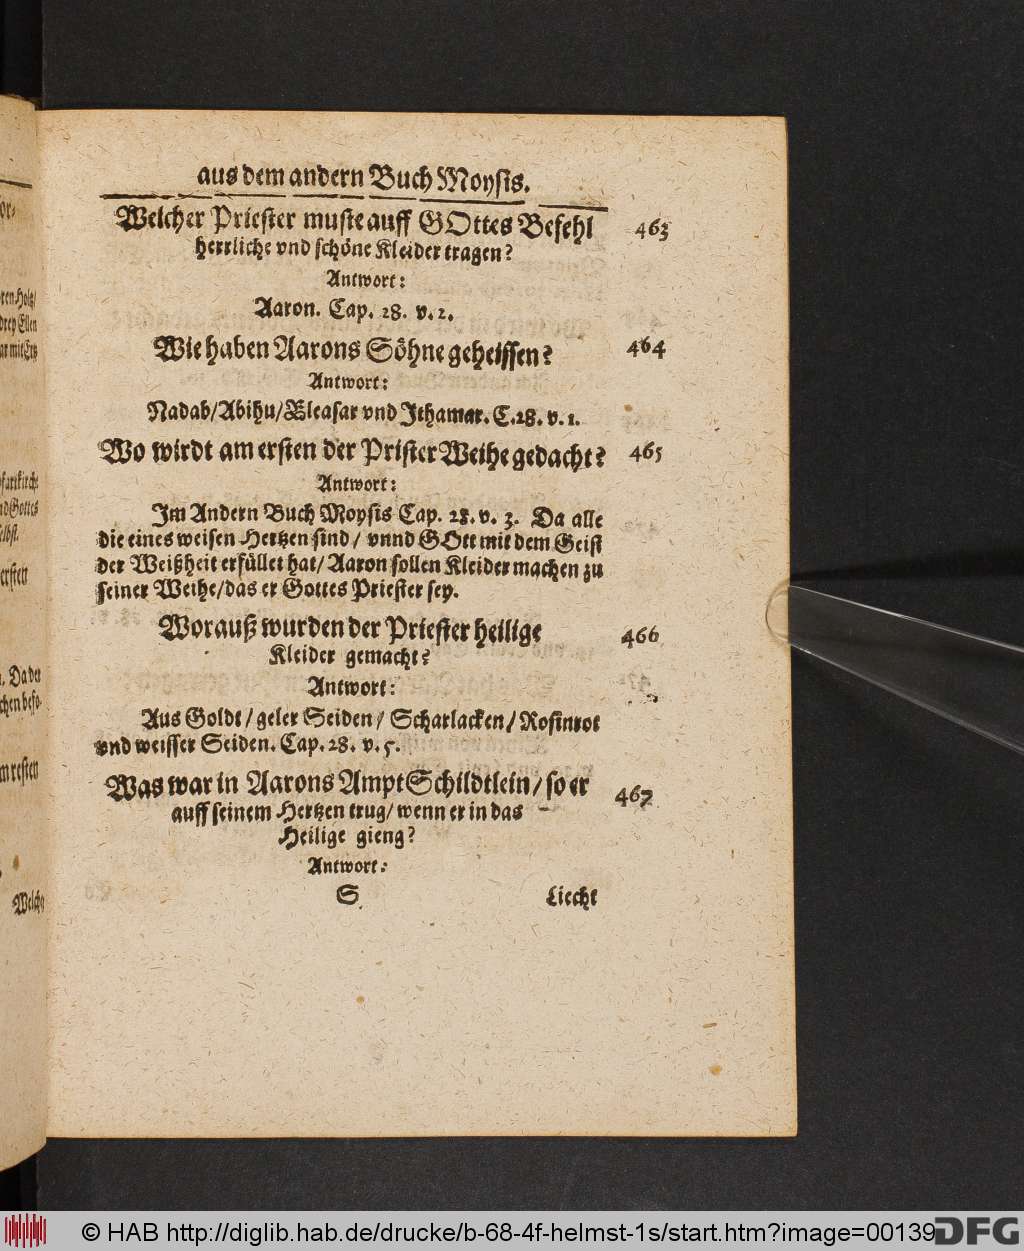 aus dem andern Buch Moysis.
Welcher Priester muste auff GOttes Befehl 463
herrliche vnd schöne Kleider tragen?
Antwort:
Aaron. Cap. 28. v. 2.
Wie haben Aarons Söhne geheissen? 464
Antwort:
Nadab/Abihu/Eleasar vnd Jthamar. C. 28. v. 1.
Wo wirdt am ersten der Prister Weihe gedacht? 465
Antwort:
Jm Andern Buch Moysis Cap. 28. v. 3. Da alle
die eines weisen Hertzen sind / vnnd GOtt mit dem Geist
der Weißheit erfüllet hat/ Aaron sollen Kleider machen zu
seiner Weihe/das er Gottes Priester sey.
Worauß wurden der Priester heilige 466
Kleider gemacht?
Antwort:
Aus Goldt / geler Seiden / Scharlacken / Rosinrot
vnd weisser Seiden. Cap. 28. v. 5.
Was war in Aarons Ampt Schildtlein / so er 467
auff seinem Hertzen trug/ wenn er in das
Heilige gieng?
Antwort:
S Liecht
oren Holtz/
drey Ellen
ar mit Ertz
Pfarrkirche
nd Gottes
selbst.
ersten
. Da der
m ersten
Welcher
© HAB http://diglib.hab.de/drucke/b-68-4f-helmst-1s/start.htm?image=00139
DFG